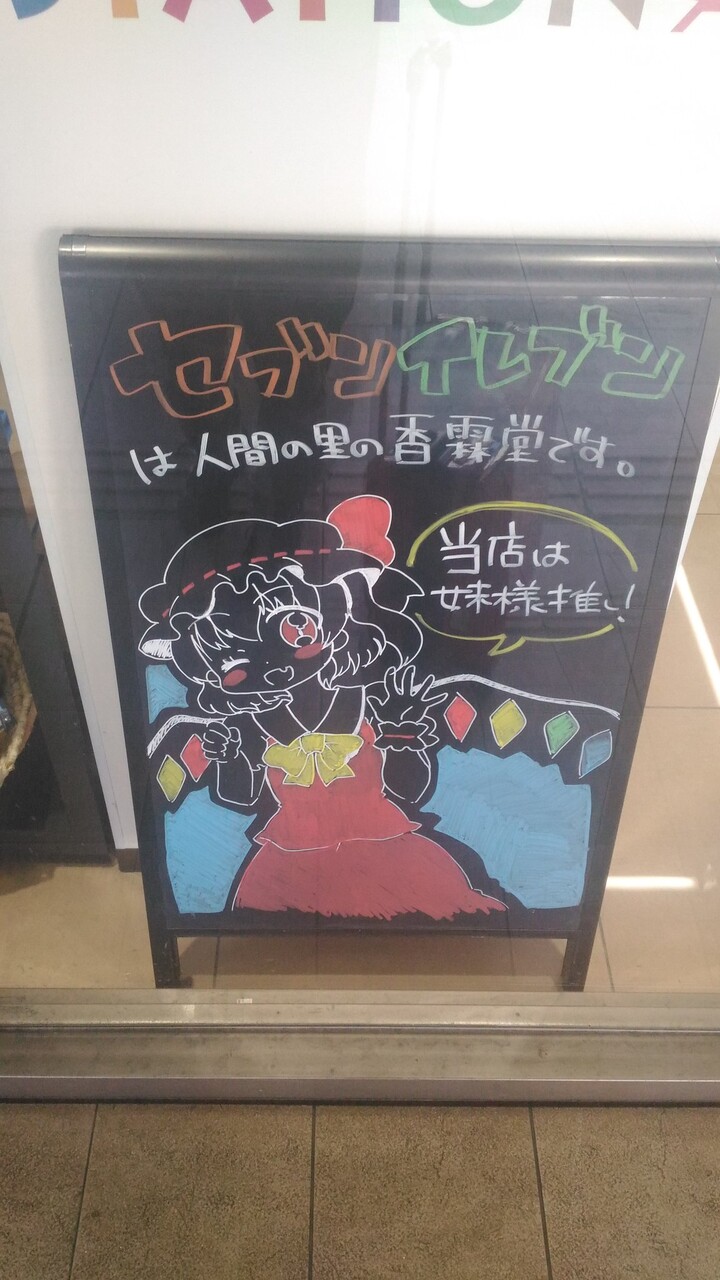 STATIONA
セブンイレブン
は人間の里の香霖堂です。
当店は
妹様推し!